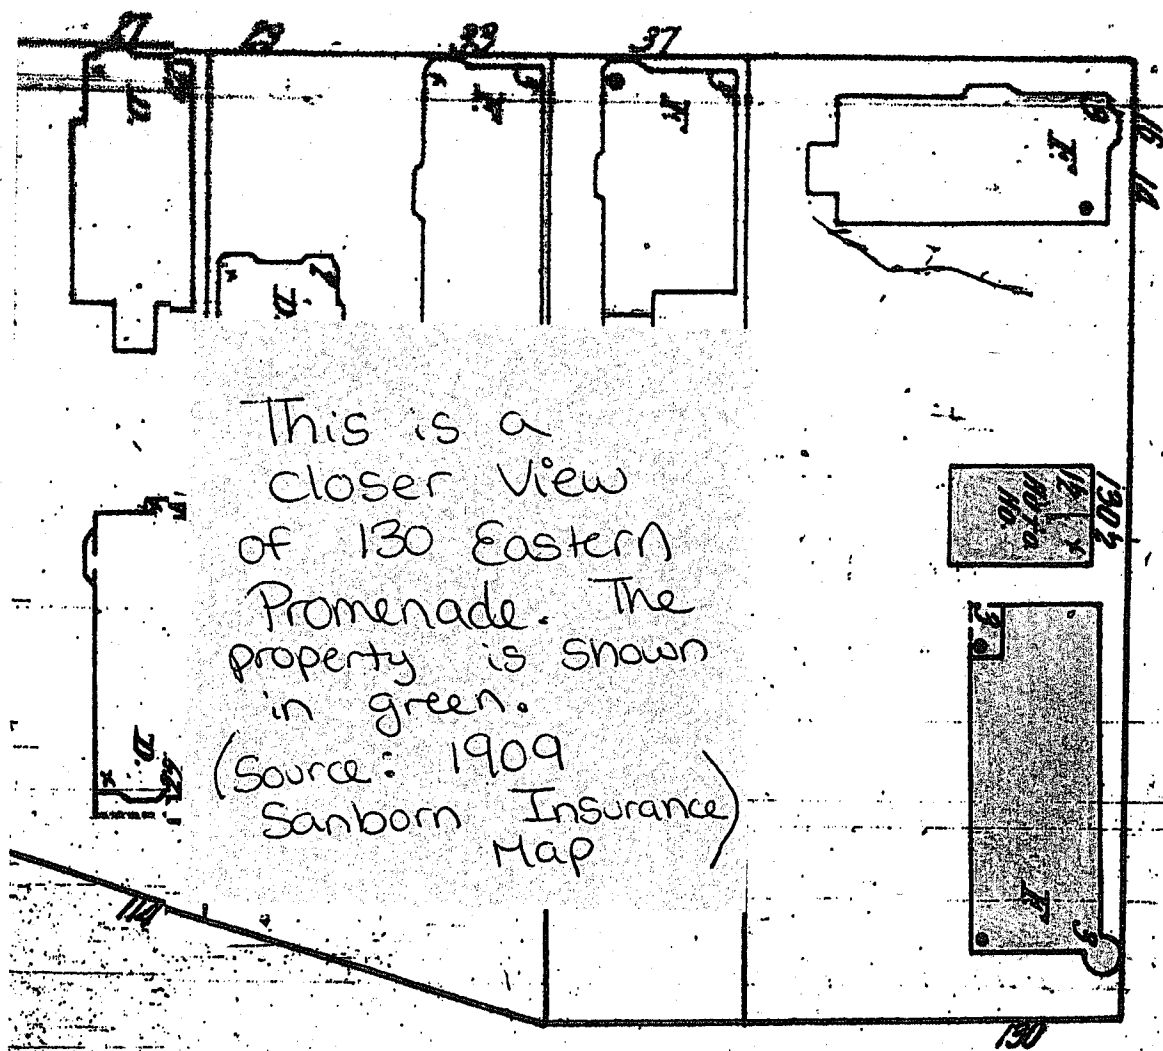 27 29 33 37
D. F. F. F.
16
14
D.
This is a
closer view
of 130 Eastern
Promenade. The
property is shown
in green.
(Source: 1909
Sanborn Insurance
Map)
1302
AUTO
HO.
D.
114
130